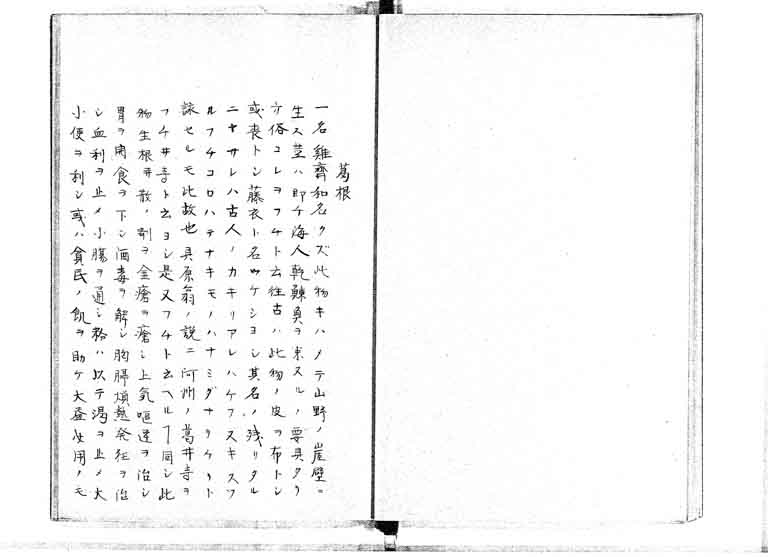 葛根
一名雞齊和名クズ此物キハメテ山野ノ崖壁ニ
生ス莖ハ即チ海人乾鰊魚ヲ束ヌルノ要具タリ
方俗コレヲフチト云往古ハ此物ノ皮ヲ布トシ
或喪トシ藤衣ト名ツケシヨシ其名ノ残リタル
ニヤサレハ古人ノカキリアレハケフヌキステ
ルフチコロハテナキモノハナミダナリケリト
詠セルモ此故也貝原翁ノ説ニ河州ノ葛井寺ヲ
フチ井寺ト云ヨシ是又フチト云ヘルヿ同シ此
物生根丼散ノ剤ヲ金瘡ヲ瘡シ上気嘔逆ヲ治シ
胃ヲ開食ヲ下シ酒毒ヲ解シ胸膈煩熱発狂ヲ治
シ血利ヲ止メ小腸ヲ通シ粉ハ以テ渇ヲ止メ大
小便ヲ利シ或ハ貧民ノ飢ヲ助ケ大益必用ノモ